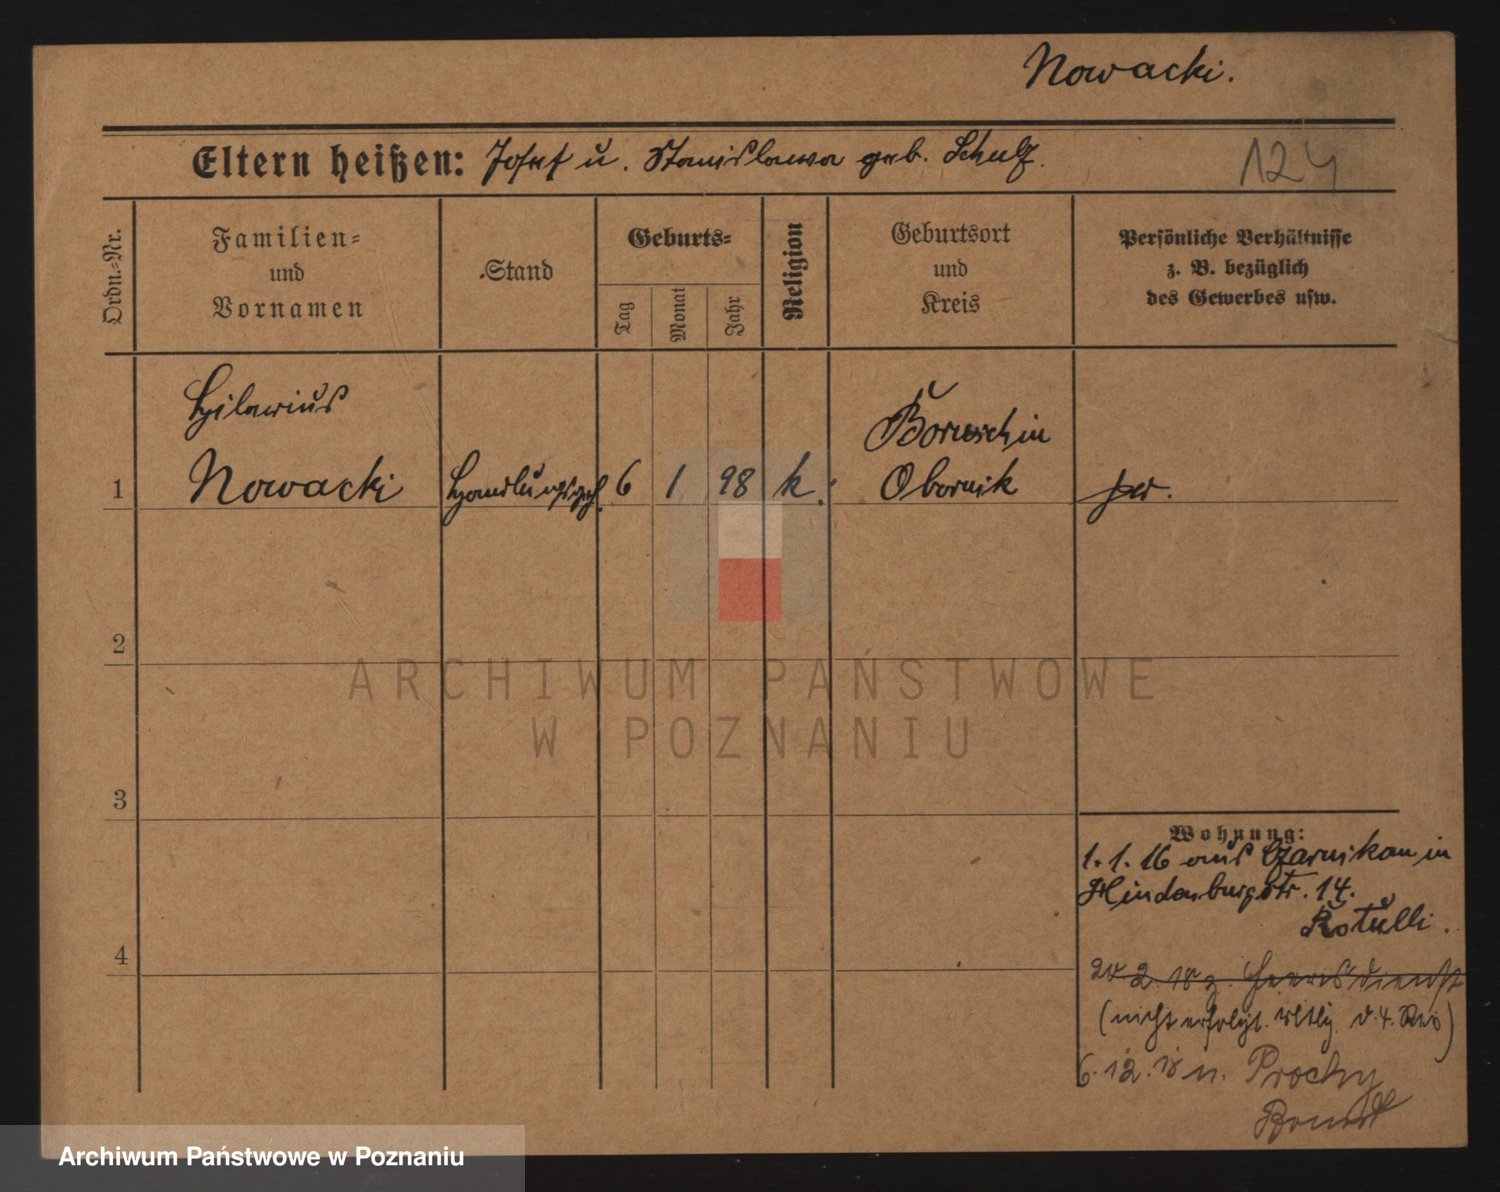 Nowacki.
Eltern heißen: Josef u. Stanislawa geb. Schulz.
124
Ordn.-Nr.
Familien-
und
Vornamen
Stand
Geburts-
Tag
Monat
Jahr
Religion
Geburtsort
und
Kreis
Persönliche Verhältnisse
z. B. bezüglich
des Gewerbes usw.
Hilarius
Nowacki
1
Handlungsgeh.
6 1 98 k.
Boruschin
Obornik
2
3
4
Wohnung:
1.1.16 aus Czarnikau in
Hindenburgstr. 14.
Kotulli.
2. 18 z. Heeresdienst
(nicht erfolgt.
6.12.18 n.
ARCHIWUM PAŃSTWOWE
W POZNANIU
Archiwum Państwowe w Poznaniu